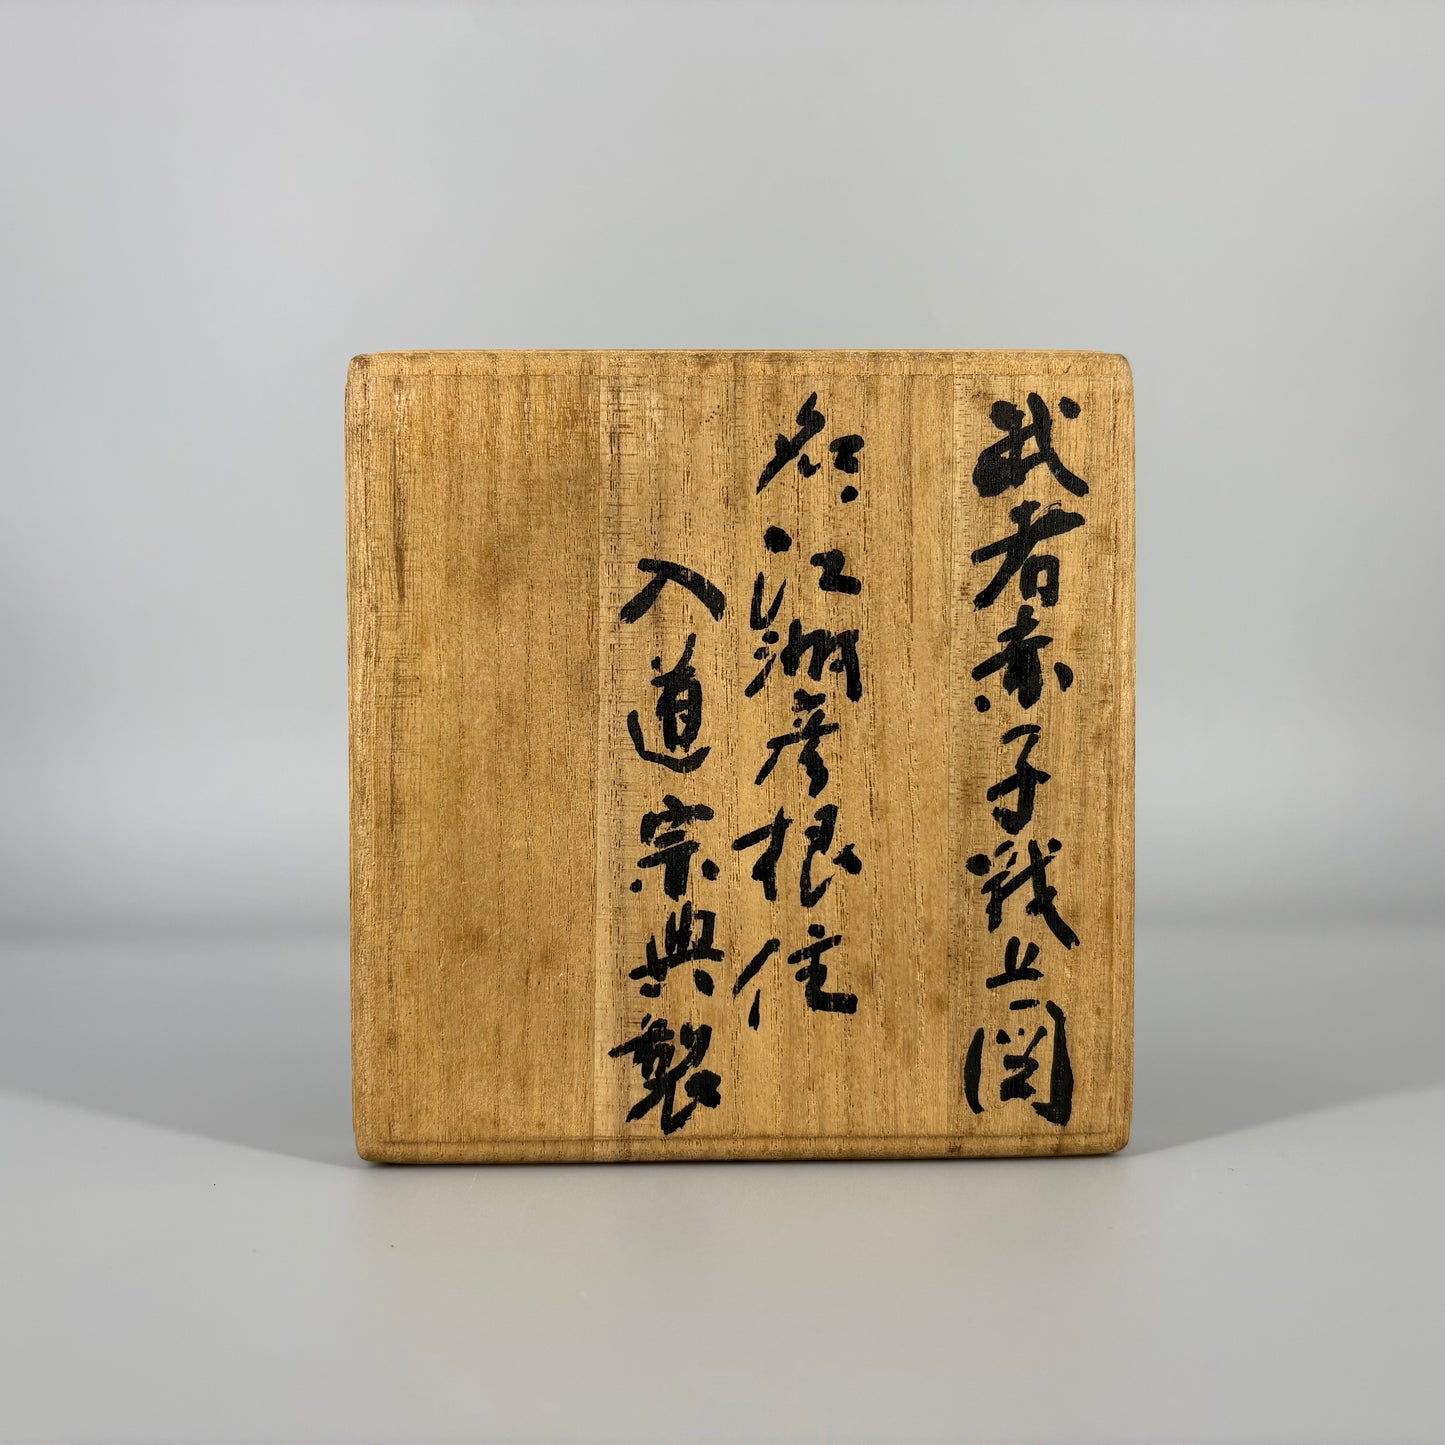 武者赤子戦之図
名 江湖彦根住
入道宗典製